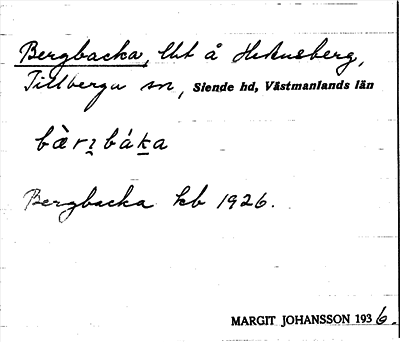 Bergbacka, lht å Hedensberg,
Tillberga sn, Siende hd, Västmanlands län
bæ̀rʒbáka
Bergbacka kb 1926.
MARGIT JOHANSSON 1936.